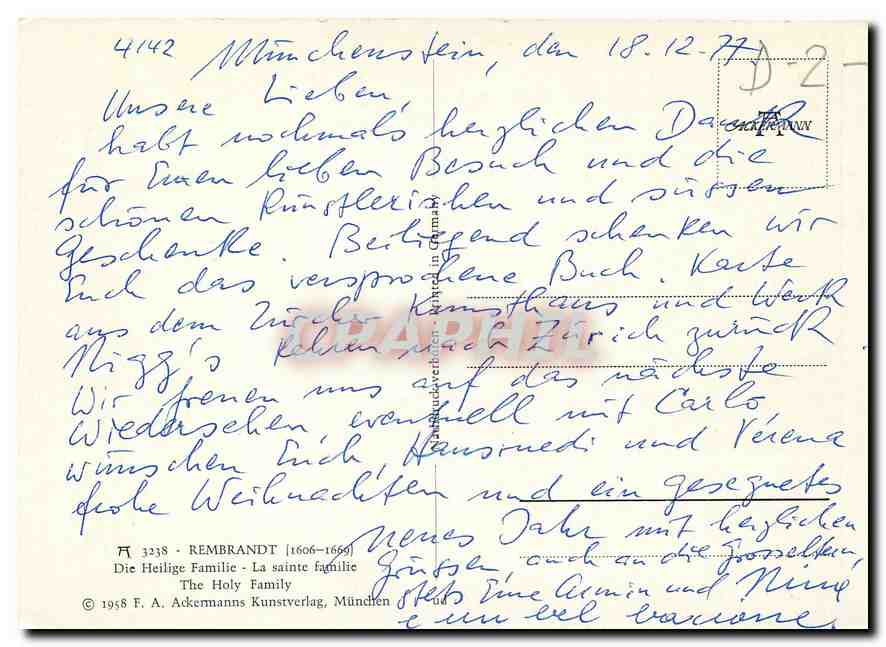 4142 Münchenstein, den 18.12.77
D-2-
Unsere Lieben,
habt nochmals herzlichen Dank
ACKERMANN
für Euren lieben Besuch und die
schönen künstlerischen und süssen
Geschenke. Beiliegend schenken wir
Euch das versprochene Buch. Karte
aus dem Zürcher Kunsthaus und Werk
Nigg's kehren nach Zürich zurück.
Wir freuen uns auf das nächste
Wiedersehen, eventuell mit Carlo,
wünschen Euch, Hansruedi und Verena
frohe Weihnachten und ein gesegnetes
neues Jahr mit herzlichen
Grüssen, auch an die Grosseltern,
stets Eure Armin und Nina
e un bel bacione.
Nachdruck verboten - Printed in Germany
GRAPHIL
3238 - REMBRANDT (1606-1669)
Die Heilige Familie - La sainte famille
The Holy Family
© 1958 F. A. Ackermanns Kunstverlag, München Süd